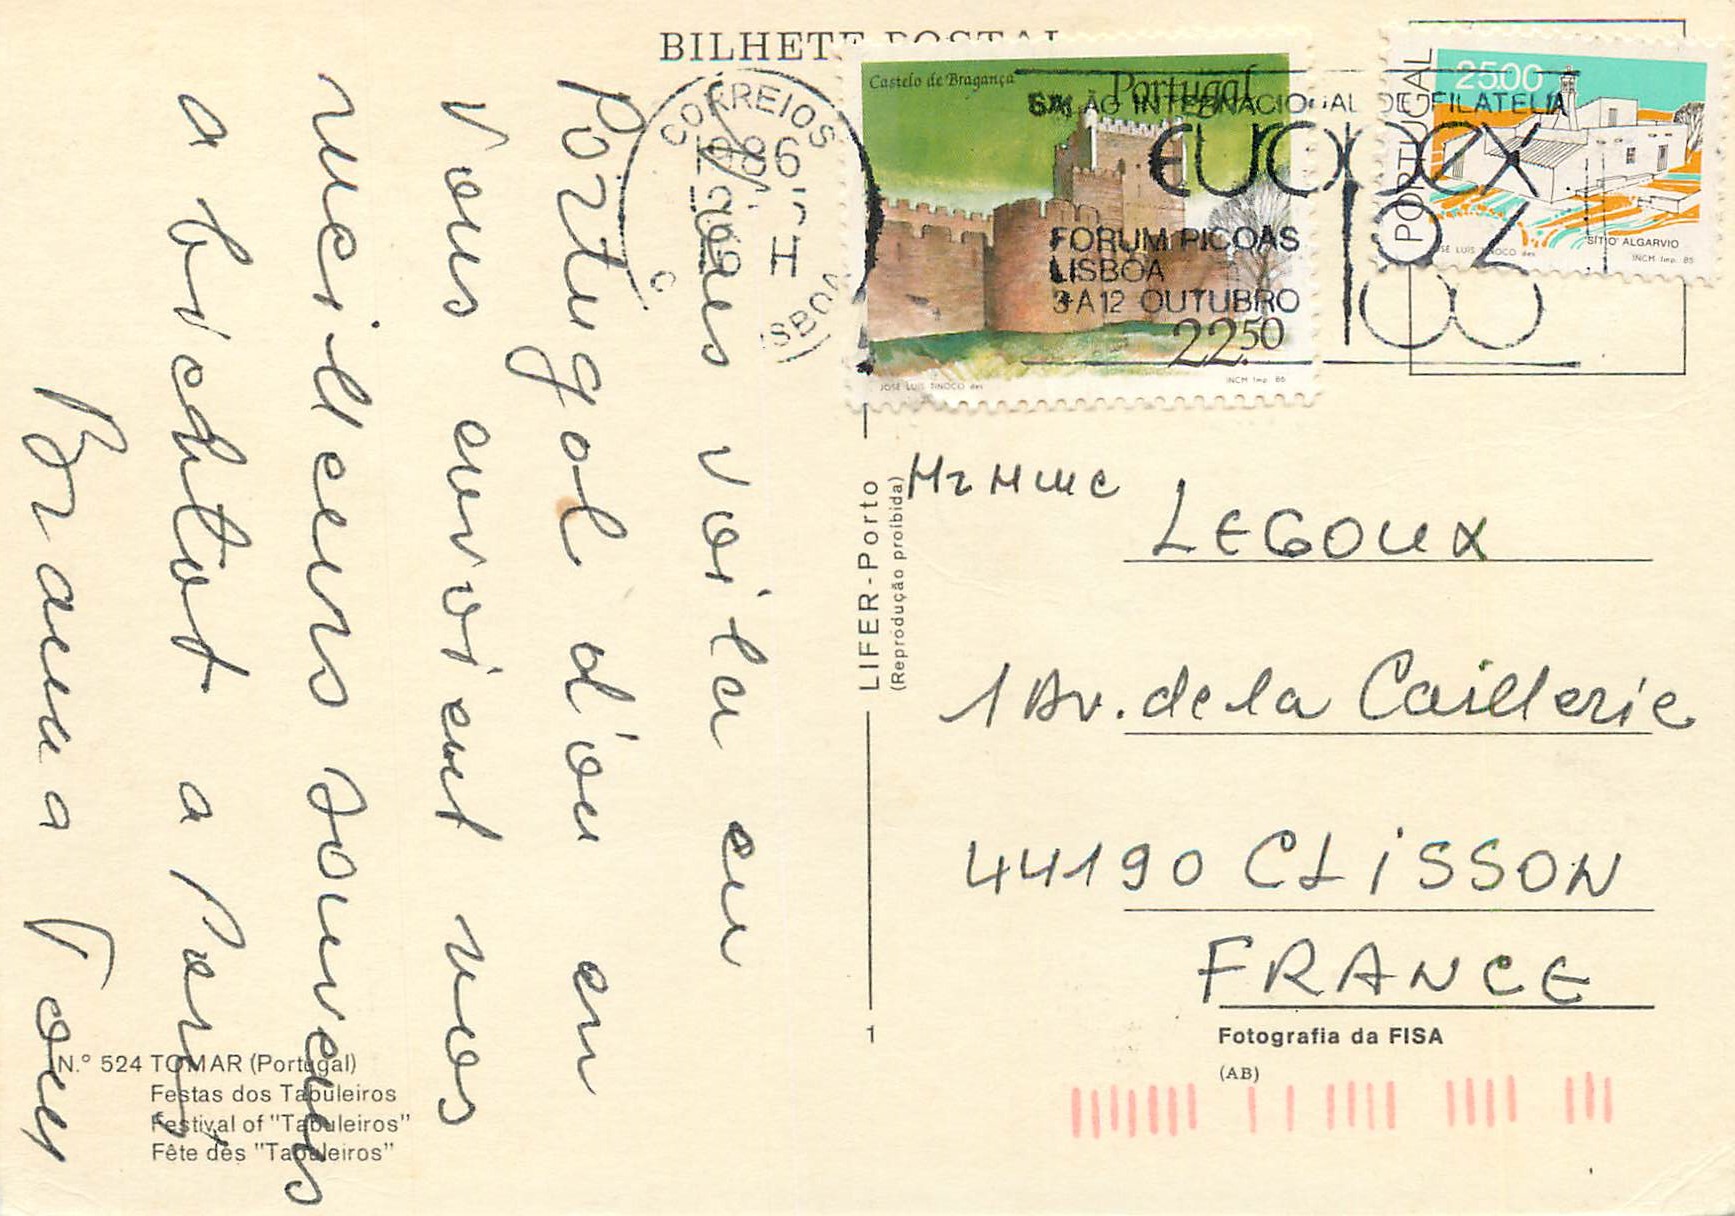 BILHETE POSTAL
CORREIOS
1986
Castelo de Bragança
Portugal
22.50
JOSÉ LUIS TINOCO des
INCM Imp. 86
PORTUGAL
2500
SÍTIO ALGARVIO
INCM Imp. 85
SALÃO INTERNACIONAL DE FILATELIA
EUROPEX
FORUM PICOAS
LISBOA
3 A 12 OUTUBRO
Nous voila en
Portugal d'ou en
Vous envoient nos
meilleurs souvenirs
a bientot a Paris
Bravma Tous
LIFER-Porto
(Reprodução proibida)
1
Mr Mme
LEGOUX
1 Av. de la Caillerie
44190 CLISSON
FRANCE
Fotografia da FISA
(AB)
N.º 524 TOMAR (Portugal)
Festas dos Tabuleiros
Festival of "Tabuleiros"
Fête des "Tabuleiros"